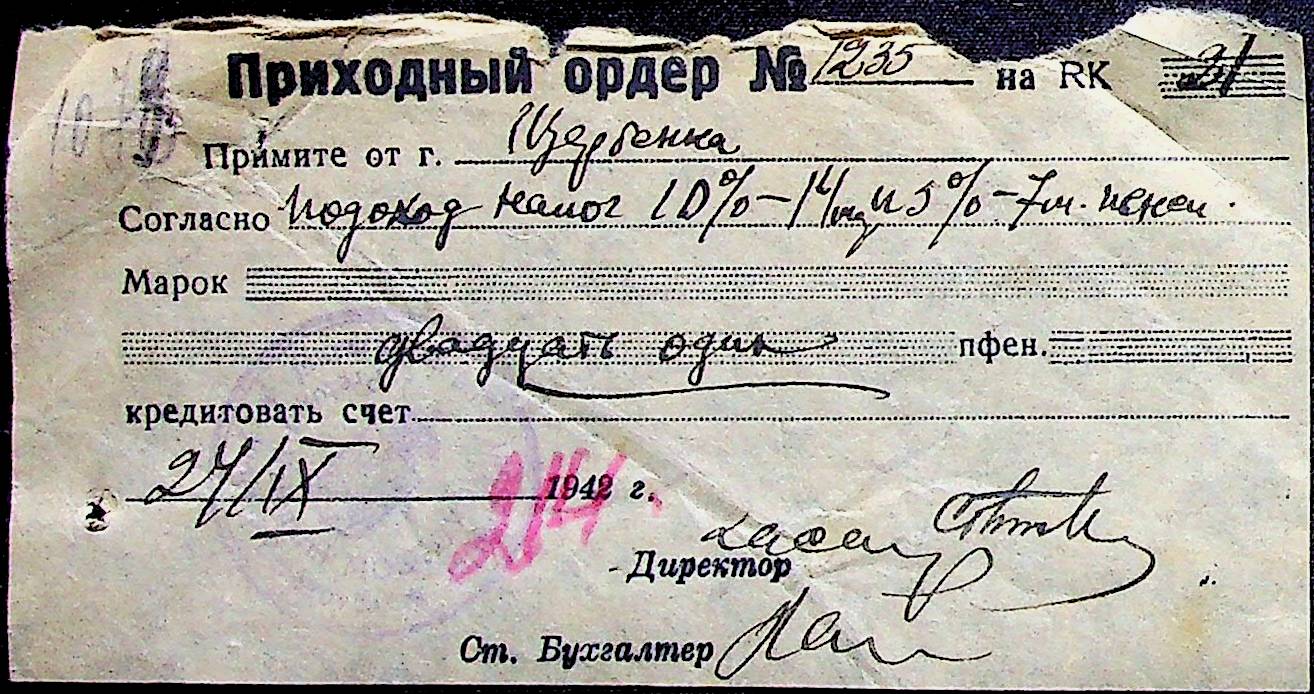 Приходный ордер № 1235 на RK 21
Примите от г. Щербенка
Согласно Подоход налог 10% – 14 и 5% – 7м.
Марок
двадцать один пфен.
кредитовать счет
24/IX 1942 г.
214
Директор
Ст. Бухгалтер